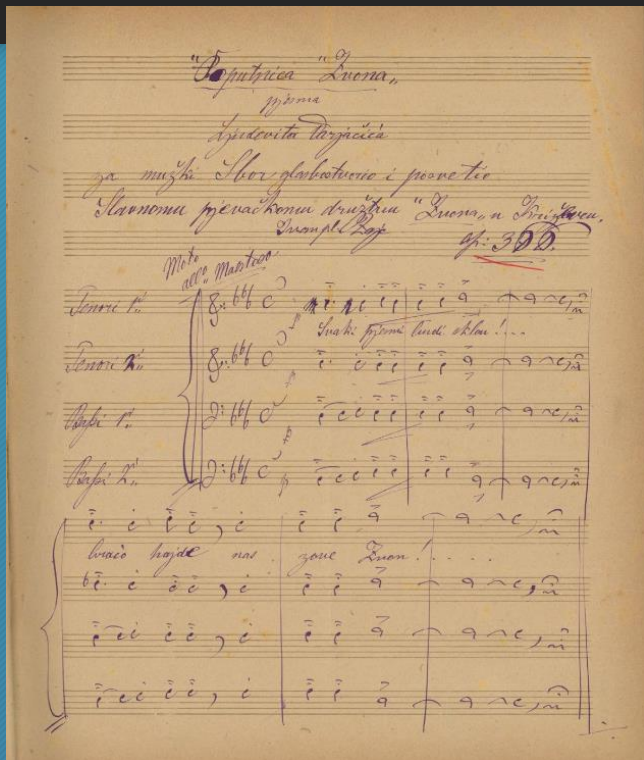 "Poputnica "Zvona„
pjesma
Ljudevita Varjačića
za mužki Sbor glasbotvorio i posvetio
Slavnomu pjevačkomu družtvu "Zvona„ u
Ivan pl. Zajc
Moto
all° Maestoso
Tenori 1i
Svaki pjesmi budi sklon!....
Tenori 2i
Bassi 1i
Bassi 2i
braćo hajde nas zove Zvon!.....